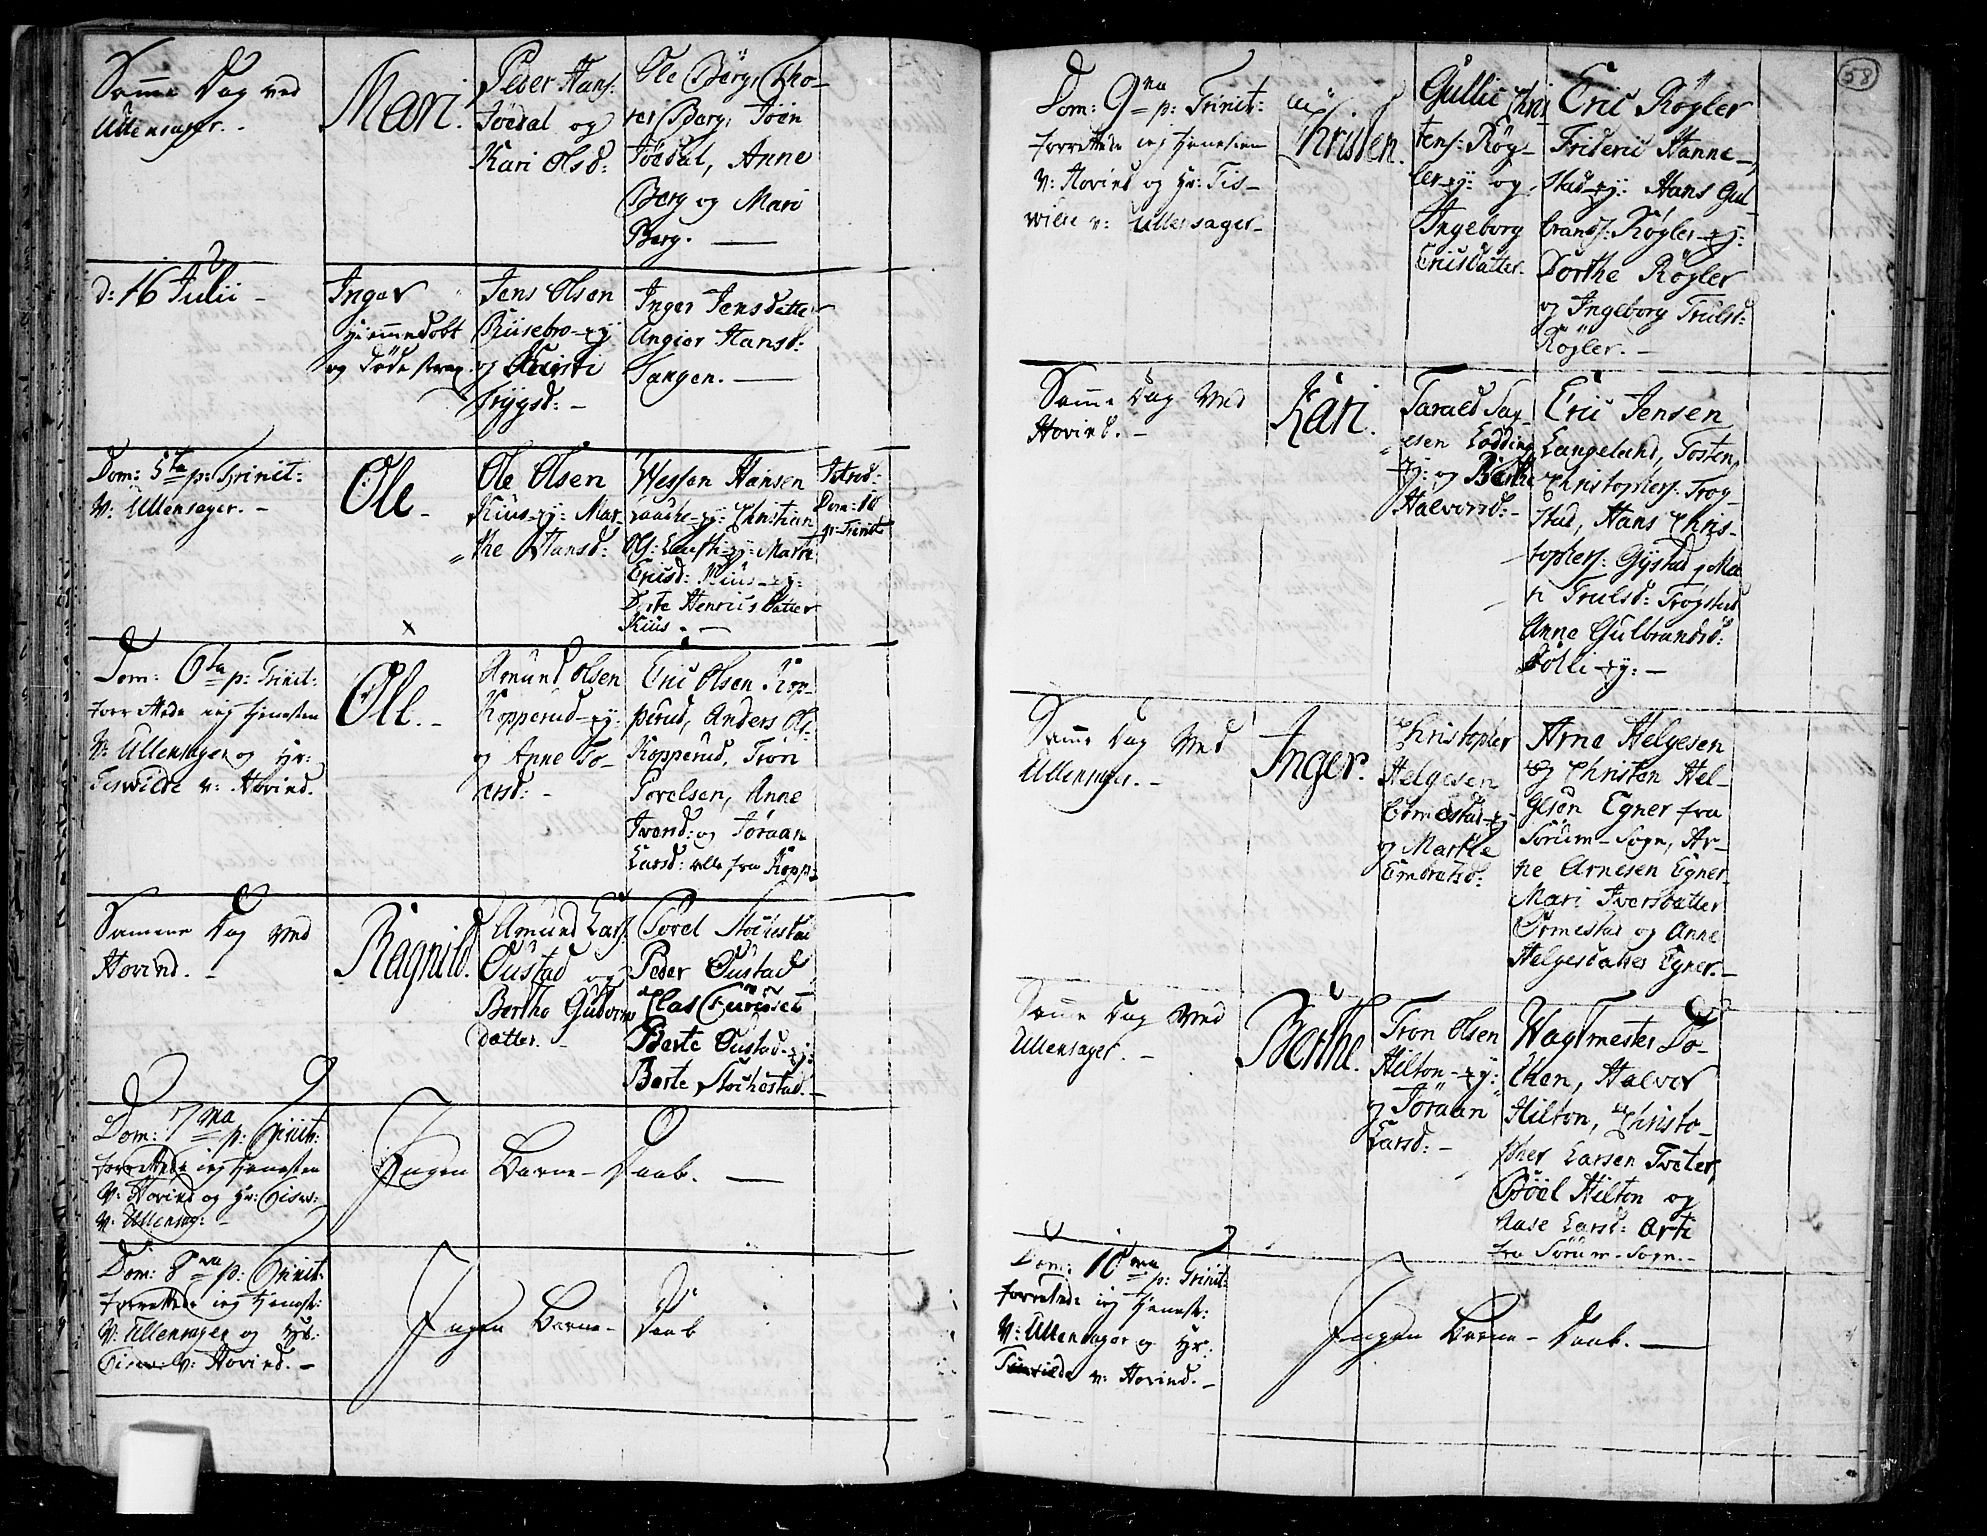 Samme Dag ved
Ullensager. -
Mari.
Peder Hans:
Jödal og
Kari Olsd:
Ole Berg, Tho-
rer Berg, Joen
Jödal, Anne
Berg og Mari
Berg. —
d: 16 Julii -
Inger
hiemmedöbt
og döde strax.
Jens Olsen
Riisebro-ey
og Kirsti
Trygsd: -
Inger Jensdatter
Angier Hansd:
Tangen. —
Dom: 5ta p: Trinit:
V: Ullensager. -
Ole -
Ole Olsen
Kiius-ey: Mar-
the Hansd:
Hansen
Christian
Marte
Ericsd: Kiius-ey:
Henricsdatter
Kiius. —
Introd:
Dom: 10
p: Trinit:
Dom: 6ta p: Trinit:
forrettede ieg tienesten
V: Ullensager og Hr:
Teswilde v: Hovind.
Ole. -
Amund Olsen
Kopperud-ey:
og Anne To-
resd: -
Eric Olsen Kop-
perud, Anders Ol:
Kopperud, Tron
Porelsen, Anne
Iversd: og Joraan
Larsd: alle fra Kopp:
Samme Dag ved
Hovind. -
Ragnild.
Amund Lars:
Oustad og
Berthe Gudvors
datter. -
Povel Stochestad
Peder Oustad
Clas
Berte Oustad-ey:
Berte Stochestad. -
Dom: 7ma p: Trinit:
forrettede ieg tienesten
V: Hovind og Hr: Tisw:
V: Ullensag: -
Ingen Barne-Daab. —
Dom: 8va p: Trinit:
forrettede ieg tienest:
V: Ullensager og Hr:
Tisw: V: Hovind. -
Ingen Barne-Daab
58
Dom: 9na p: Trinit:
forrettede ieg tienesten
V: Hovind og Hr: Tis-
wilde v: Ullensager -
Christen.
Gullic Chris
tens: Rög-
ler-ey: og
Ingeborg
Ericsdatter.
Eric Rögler
Frideric Hanne-
stad-ey: Hans Gul-
brands: Rögler-ey:
Dorthe Rögler
og Ingeborg Trulsd:
Rögler. -
Samme Dag ved
Hovind. -
Kari.
Tarald Tag-
esen Lodding
ey: og Berthe
Halvorsd: -
Eric Jensen
Langeland, Tosten
Christophers: Trog-
stad, Hans Chris-
tophers: Gystad, Ma
ri Trulsd: Trogstad
Anne Gulbrandsd:
Dölli-ey: -
Samme Dag ved
Ullensager. -
Inger.
Christopher
Helgesen
Ormestad-ey
og Marthe
Embretsd:
Arne Helgesen
og Christen Hel-
gesen Egner fra
Sörum-Sogn, Ar-
ne Arnesen Egner
Mari Iversdatter
Ormestad og Anne
Helgesdatter Egner. -
Samme Dag ved
Ullensager. -
Berthe.
Tron Olsen
Hilton-ey:
og Joraan
Larsd: -
Wagtmester Do-
then, Halvor
Hilton, Christo-
pher Larsen Tveter,
Böel Hilton og
Aase Larsd: Arti
fra Sörum-Sogn. -
Dom: 10ma p: Trinit:
forrettede ieg tienest:
V: Ullensager og Hr:
Tisvilde v: Hovind. -
Ingen Barne-Daab. —